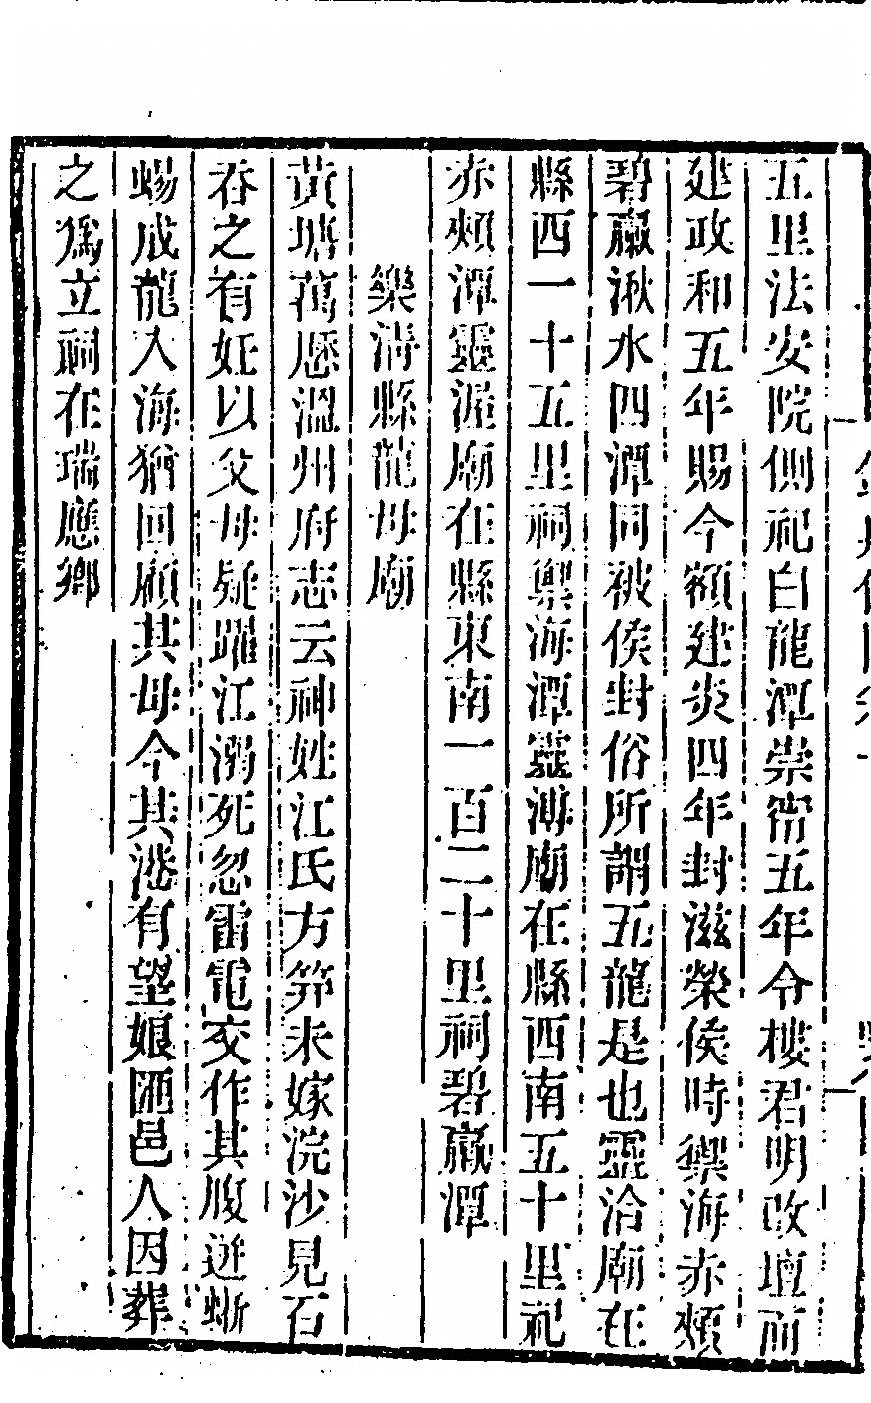 五里法安院側祀白龍潭崇甯五年令樓君明改壇而
建政和五年賜今額建炎四年封滋榮侯時禦海赤頰
碧巖湫水四潭同被侯封俗所謂五龍是也靈洽廟在
縣西一十五里祠禦海潭靈溥廟在縣西南五十里祀
赤頰潭靈渥廟在縣東南一百二十里祠碧巖潭
樂清縣龍母廟
黃塘萬厯溫州府志云神姓江氏方笄未嫁浣沙見石
吞之有妊以父母疑躍江溺死忽雷電交作其腹迸蜥
蜴成龍入海猶回顧其母今其港有望娘匯邑人因葬
之爲立祠在瑞應鄉